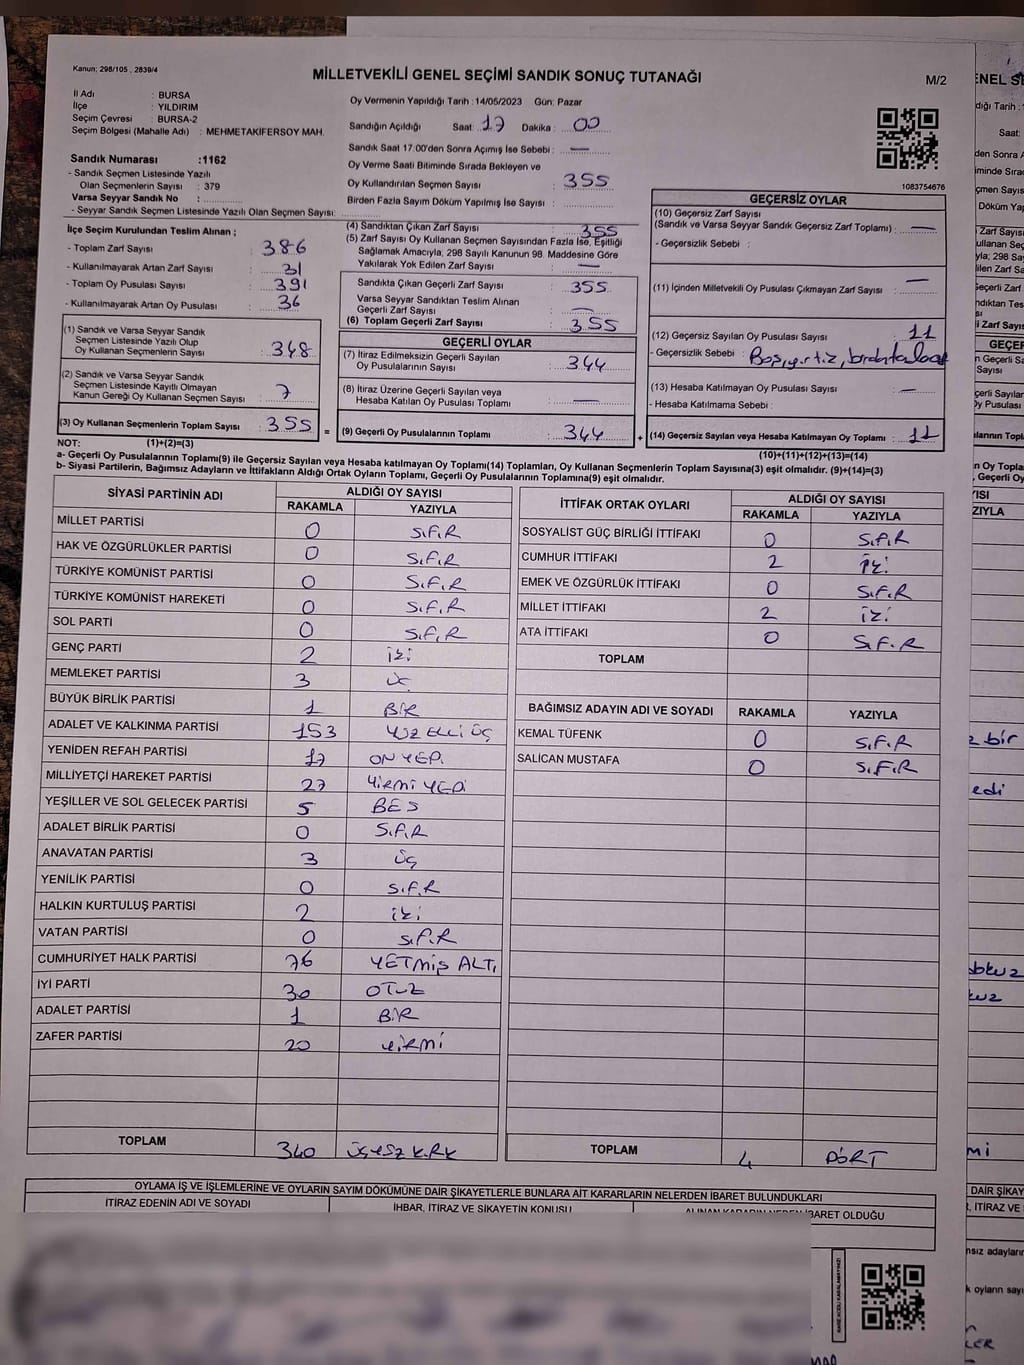 Kanun; 298/105 , 2839/4
MİLLETVEKİLİ GENEL SEÇİMİ SANDIK SONUÇ TUTANAĞI
M/2
İl Adı : BURSA
İlçe : YILDIRIM
Seçim Çevresi : BURSA-2
Seçim Bölgesi (Mahalle Adı) : MEHMETAKİFERSOY MAH.
Sandık Numarası :1162
- Sandık Seçmen Listesinde Yazılı
Olan Seçmenlerin Sayısı : 379
Varsa Seyyar Sandık No :
- Seyyar Sandık Seçmen Listesinde Yazılı Olan Seçmen Sayısı:
Oy Vermenin Yapıldığı Tarih : 14/05/2023 Gün: Pazar
Sandığın Açıldığı Saat: 17 Dakika : 00
Sandık Saat 17:00'den Sonra Açımış İse Sebebi : —
Oy Verme Saati Bitiminde Sırada Bekleyen ve
Oy Kullandırılan Seçmen Sayısı : 355
Birden Fazla Sayım Döküm Yapılmış İse Sayısı :
1083754676
İlçe Seçim Kurulundan Teslim Alınan ;
- Toplam Zarf Sayısı : 386
- Kullanılmayarak Artan Zarf Sayısı : 31
- Toplam Oy Pusulası Sayısı : 391
- Kullanılmayarak Artan Oy Pusulası : 36
(1) Sandık ve Varsa Seyyar Sandık
Seçmen Listesinde Yazılı Olup
Oy Kullanan Seçmenlerin Sayısı : 348
(2) Sandık ve Varsa Seyyar Sandık
Seçmen Listesinde Kayıtlı Olmayan
Kanun Gereği Oy Kullanan Seçmen Sayısı : 7
(3) Oy Kullanan Seçmenlerin Toplam Sayısı : 355
(4) Sandıktan Çıkan Zarf Sayısı : 355
(5) Zarf Sayısı Oy Kullanan Seçmen Sayısından Fazla İse, Eşitliği
Sağlamak Amacıyla, 298 Sayılı Kanunun 98. Maddesine Göre
Yakılarak Yok Edilen Zarf Sayısı : —
Sandıkta Çıkan Geçerli Zarf Sayısı : 355
Varsa Seyyar Sandıktan Teslim Alınan
Geçerli Zarf Sayısı : —
(6) Toplam Geçerli Zarf Sayısı : 355
GEÇERLİ OYLAR
(7) İtiraz Edilmeksizin Geçerli Sayılan
Oy Pusulalarının Sayısı : 344
(8) İtiraz Üzerine Geçerli Sayılan veya
Hesaba Katılan Oy Pusulası Toplamı : —
= (9) Geçerli Oy Pusulalarının Toplamı : 344
GEÇERSİZ OYLAR
(10) Geçersiz Zarf Sayısı
(Sandık ve Varsa Seyyar Sandık Geçersiz Zarf Toplamı) : —
- Geçersizlik Sebebi :
(11) İçinden Milletvekili Oy Pusulası Çıkmayan Zarf Sayısı : —
(12) Geçersiz Sayılan Oy Pusulası Sayısı : 11
- Geçersizlik Sebebi : Boş,yırtız,
(13) Hesaba Katılmayan Oy Pusulası Sayısı : —
- Hesaba Katılmama Sebebi :
+ (14) Geçersiz Sayılan veya Hesaba Katılmayan Oy Toplamı : 11
NOT: (1)+(2)=(3)
(10)+(11)+(12)+(13)=(14)
a- Geçerli Oy Pusulalarının Toplamı(9) ile Geçersiz Sayılan veya Hesaba katılmayan Oy Toplamı(14) Toplamları, Oy Kullanan Seçmenlerin Toplam Sayısına(3) eşit olmalıdır. (9)+(14)=(3)
b- Siyasi Partilerin, Bağımsız Adayların ve İttifakların Aldığı Ortak Oyların Toplamı, Geçerli Oy Pusulalarının Toplamına(9) eşit olmalıdır.
SİYASİ PARTİNİN ADI ALDIĞI OY SAYISI
RAKAMLA YAZIYLA
MİLLET PARTİSİ 0 SıFıR
HAK VE ÖZGÜRLÜKLER PARTİSİ 0 SıFıR
TÜRKİYE KOMÜNİST PARTİSİ 0 SıFıR
TÜRKİYE KOMÜNİST HAREKETİ 0 SıFıR
SOL PARTİ 0 SıFıR
GENÇ PARTİ 2 iki
MEMLEKET PARTİSİ 3 üç
BÜYÜK BİRLİK PARTİSİ 1 BİR
ADALET VE KALKINMA PARTİSİ 153 YÜZ ELLİ ÜÇ
YENİDEN REFAH PARTİSİ 17 ON YEDİ
MİLLİYETÇİ HAREKET PARTİSİ 27 Yirmi YEDİ
YEŞİLLER VE SOL GELECEK PARTİSİ 5 BES
ADALET BİRLİK PARTİSİ 0 SıFıR
ANAVATAN PARTİSİ 3 üç
YENİLİK PARTİSİ 0 SıFıR
HALKIN KURTULUŞ PARTİSİ 2 iki
VATAN PARTİSİ 0 SıFıR
CUMHURİYET HALK PARTİSİ 76 YETMİŞ ALTı
İYİ PARTİ 30 OTUZ
ADALET PARTİSİ 1 BİR
ZAFER PARTİSİ 20 yirmi
TOPLAM 340 üçyüz KıRK
İTTİFAK ORTAK OYLARI ALDIĞI OY SAYISI
RAKAMLA YAZIYLA
SOSYALİST GÜÇ BİRLİĞİ İTTİFAKI 0 SıFıR
CUMHUR İTTİFAKI 2 iki
EMEK VE ÖZGÜRLÜK İTTİFAKI 0 SıFıR
MİLLET İTTİFAKI 2 iki
ATA İTTİFAKI 0 SıFıR
TOPLAM
BAĞIMSIZ ADAYIN ADI VE SOYADI RAKAMLA YAZIYLA
KEMAL TÜFENK 0 SıFıR
SALİCAN MUSTAFA 0 SıFıR
TOPLAM 4 DÖRT
OYLAMA İŞ VE İŞLEMLERİNE VE OYLARIN SAYIM DÖKÜMÜNE DAİR ŞİKAYETLERLE BUNLARA AİT KARARLARIN NELERDEN İBARET BULUNDUKLARI
İTİRAZ EDENİN ADI VE SOYADI İHBAR, İTİRAZ VE ŞİKAYETİN KONUSU ALINAN KARARIN NEDEN İBARET OLDUĞU